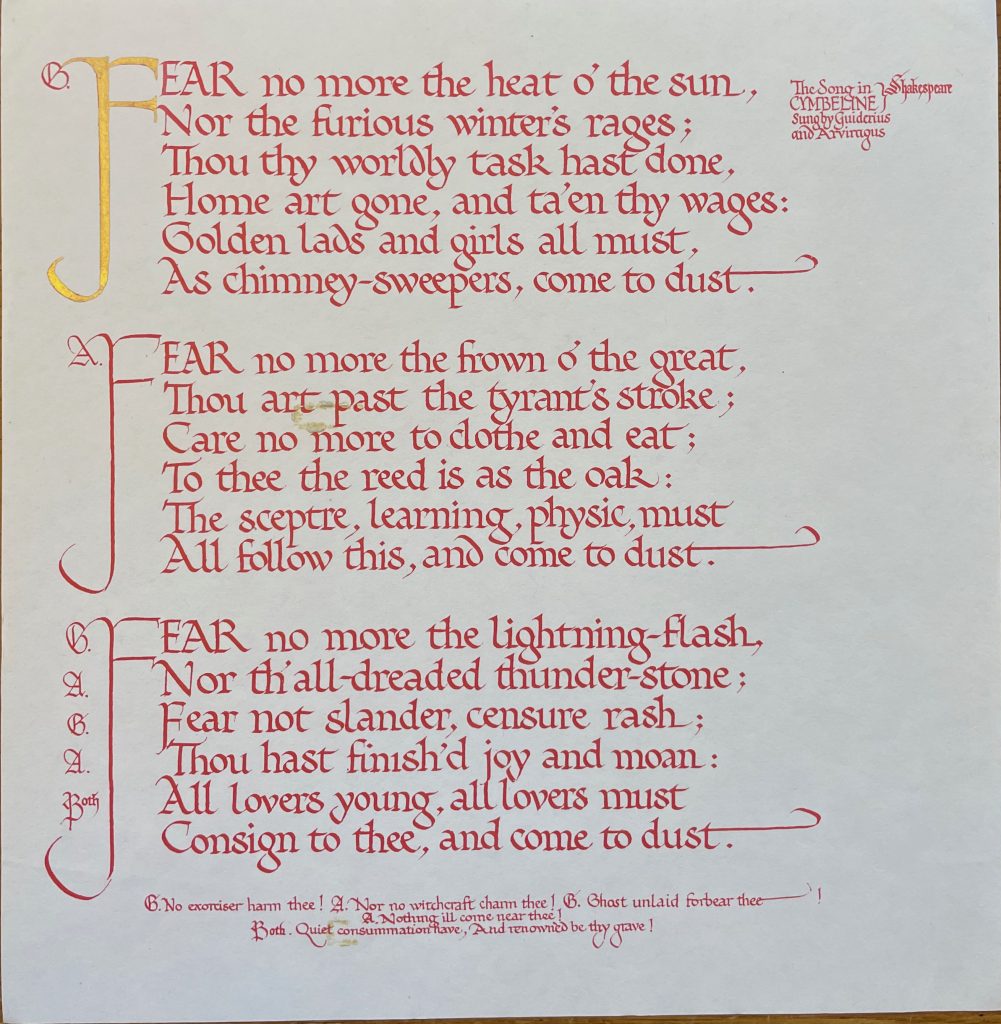 G. FEAR no more the heat o' the sun,
Nor the furious winter's rages;
Thou thy worldly task hast done,
Home art gone, and ta'en thy wages:
Golden lads and girls all must,
As chimney-sweepers, come to dust.
The Song in } Shakespeare
CYMBELINE
Sung by Guiderius
and Arviragus
A. FEAR no more the frown o' the great,
Thou art past the tyrant's stroke;
Care no more to clothe and eat;
To thee the reed is as the oak:
The sceptre, learning, physic, must
All follow this, and come to dust.
G. FEAR no more the lightning-flash,
A. Nor th'all-dreaded thunder-stone;
G. Fear not slander, censure rash;
A. Thou hast finish'd joy and moan:
Both All lovers young, all lovers must
Consign to thee, and come to dust.
G. No exorciser harm thee! A. Nor no witchcraft charm thee! G. Ghost unlaid forbear thee!
A. Nothing ill come near thee!
Both. Quiet consummation have, And renowned be thy grave!